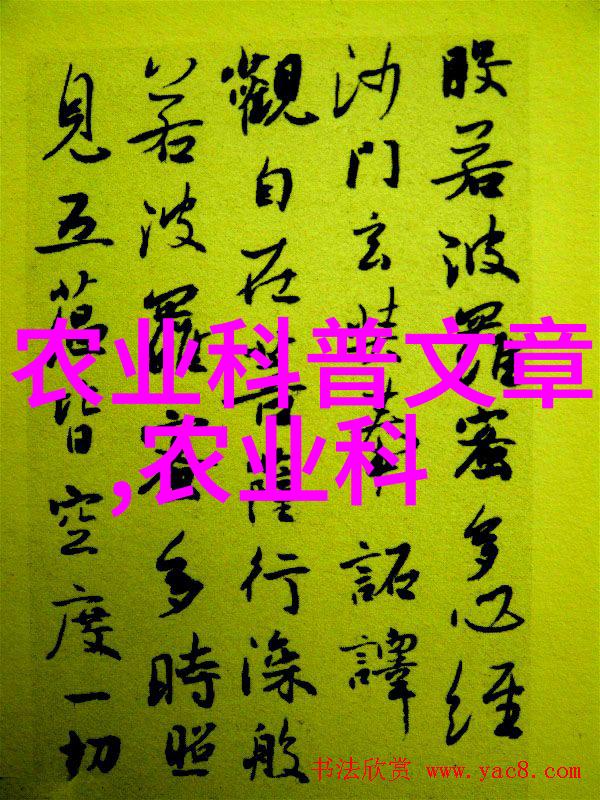 般若波羅蜜多心經
沙門玄奘奉 詔譯
觀自在菩薩行深般
若波羅蜜多時照
見五蘊皆空度一切
农业科普文章
,农业科
书法欣赏 www.yac8.com